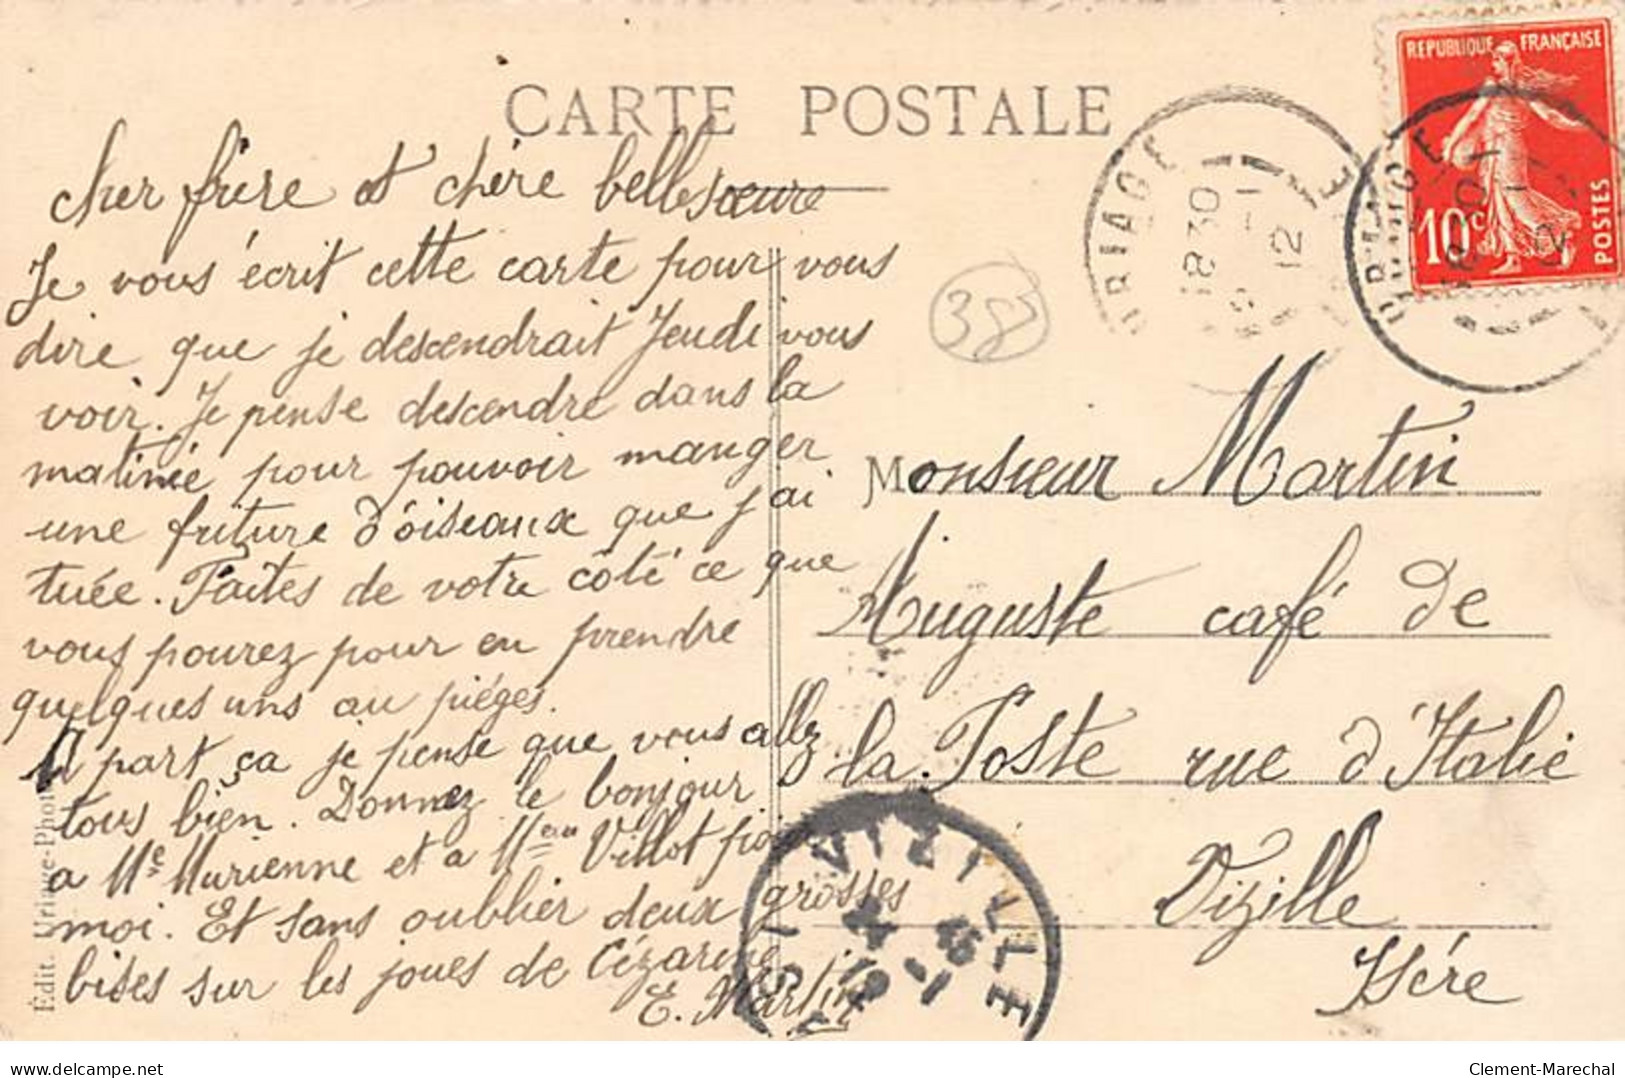 CARTE POSTALE
Cher frère et chère bellesoeure
Je vous écrit cette carte pour vous
dire que je descendrait Jeudi vous
voir. Je pense descendre dans la
matinée pour pouvoir manger
une friture d'oiseaux que j'ai
tuée. Faites de votre côté ce que
vous pourez pour en prendre
quelques uns au piéges.
A part ça je pense que vous allez
tous bien. Donnez le bonjour
a Me Murienne et a Villot
moi. Et sans oublier deux grosses
bises sur les joues de Cézarine
E. Martin
Édit. Uriage-Photo
38
REPUBLIQUE FRANÇAISE
10c
POSTES
URIAGE
18 30
12
URIAGE
Monsieur Martin
Auguste café de
la Poste rue d'Italie
Vizille
Isére
VIZILLE
delcampe.net
Clement-Marechal